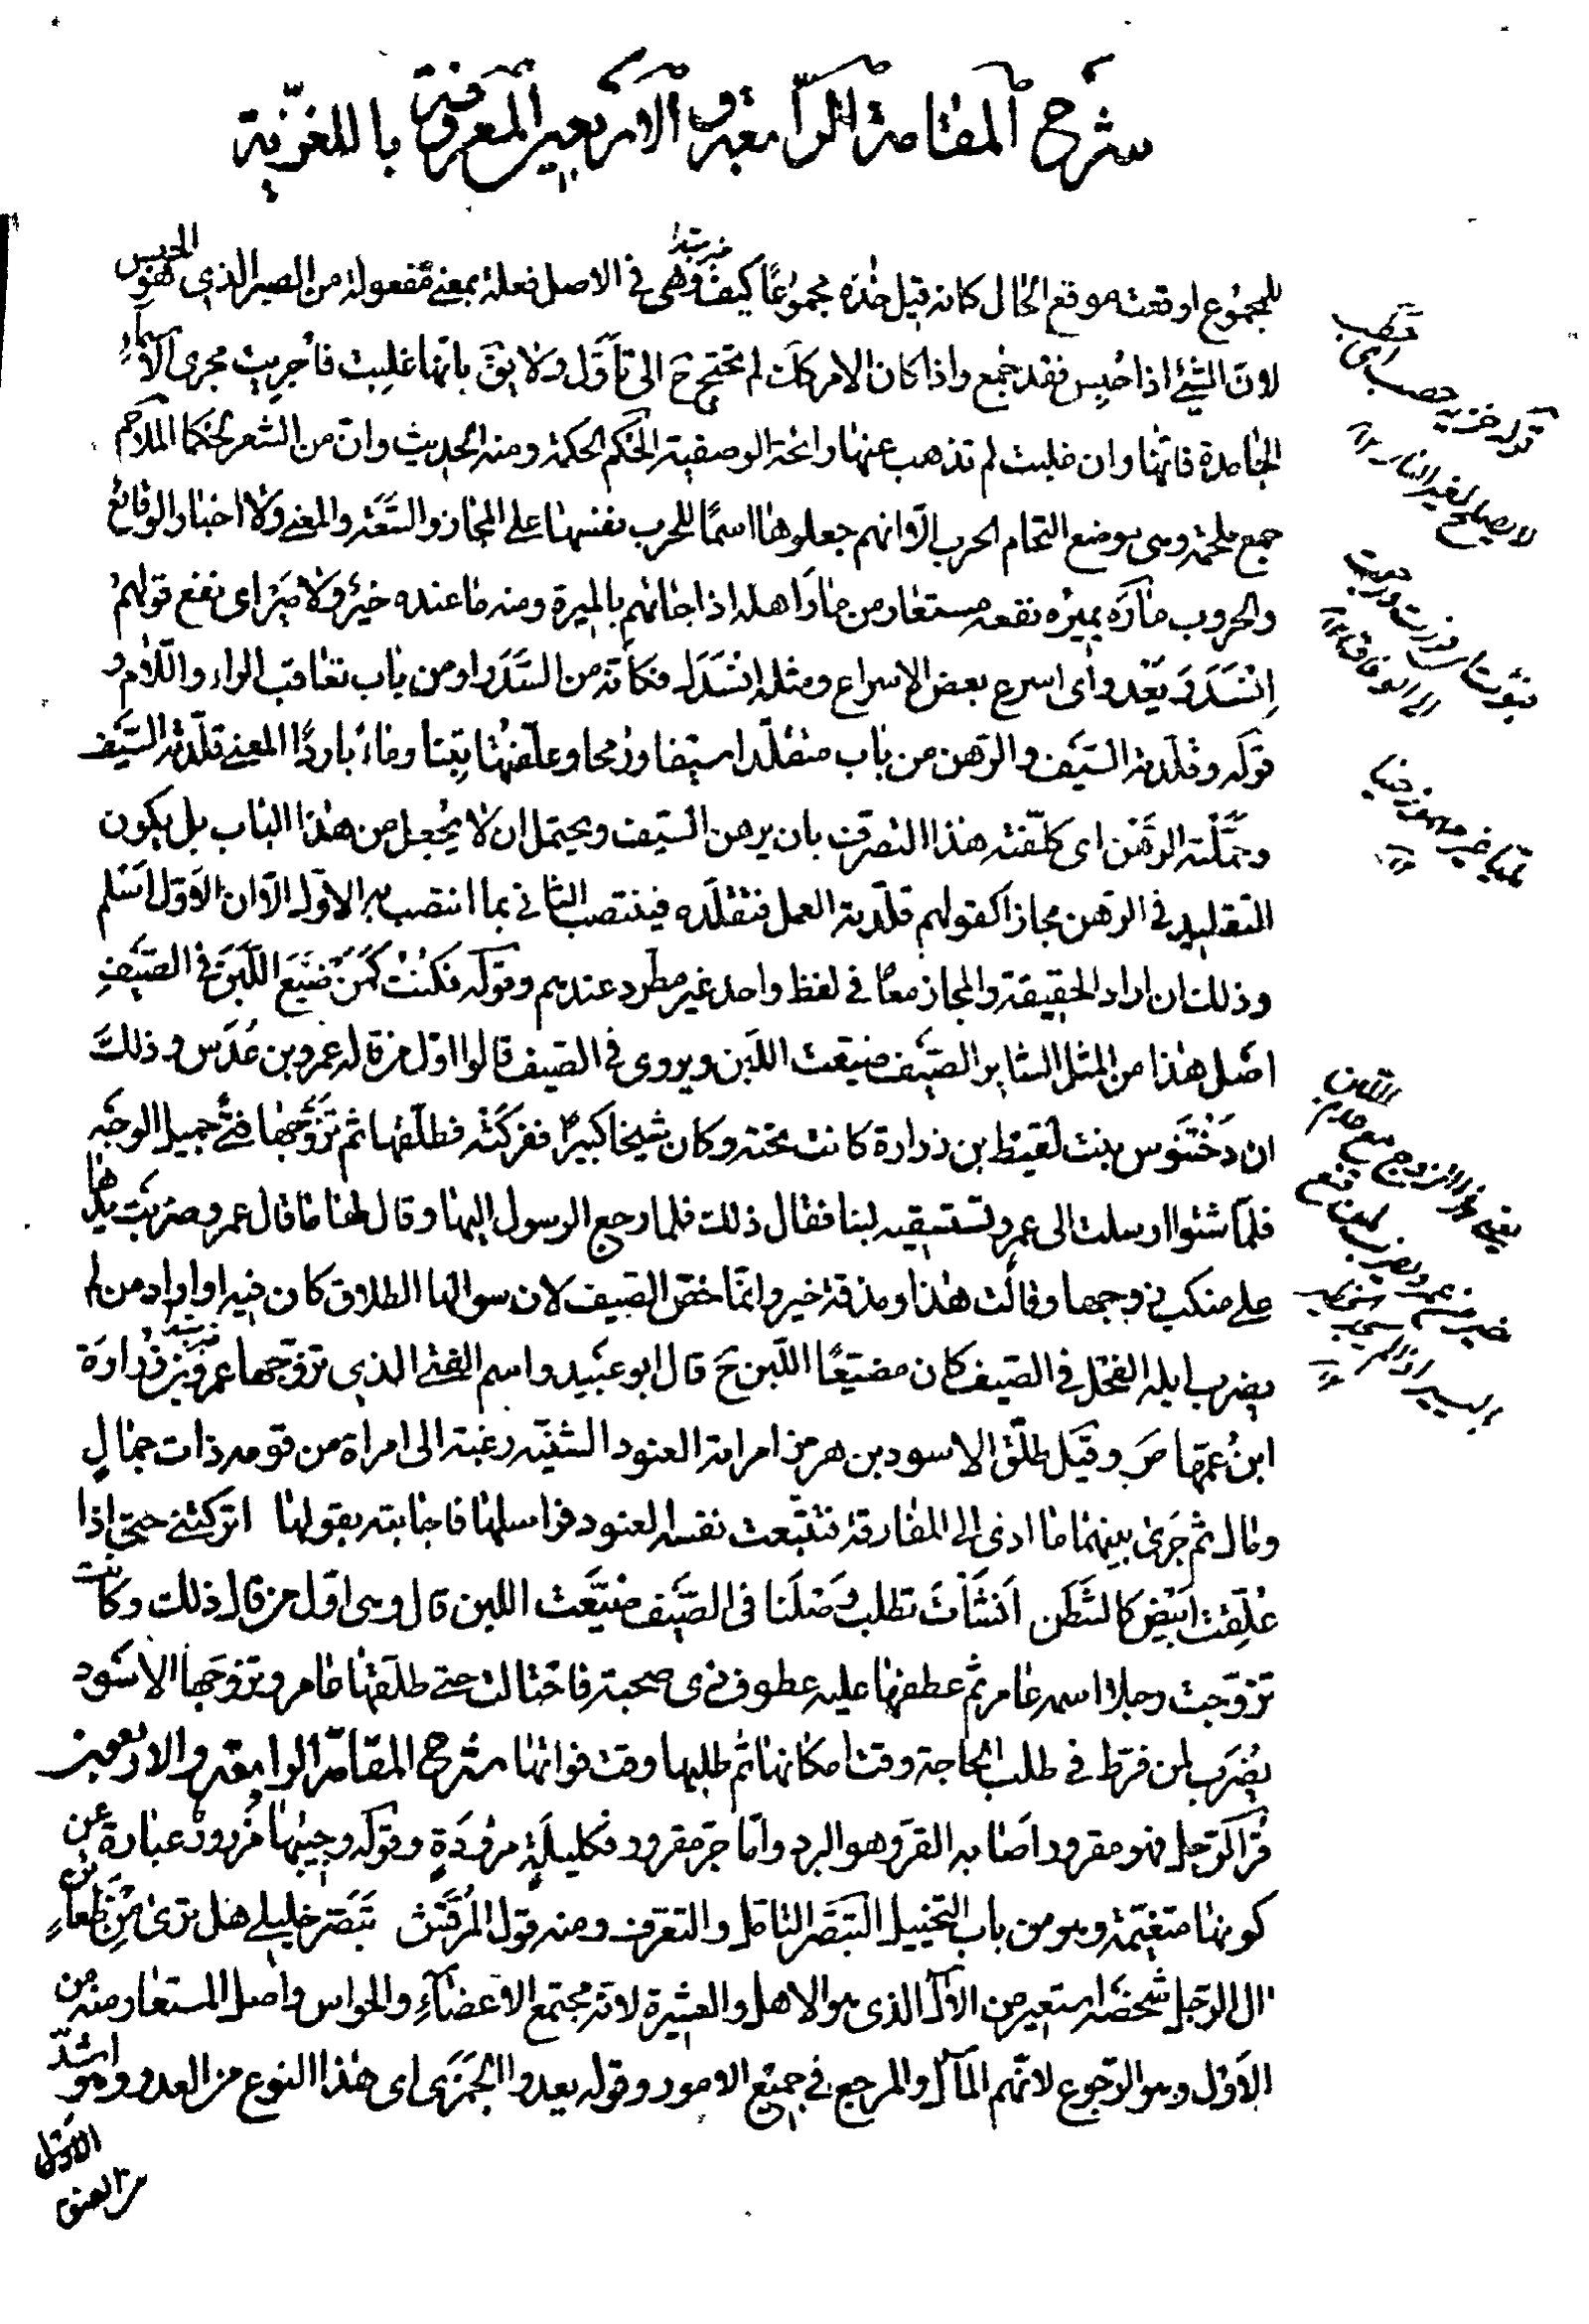 شرح المقامة الرابعة والاربعين المعروفة باللغزية
للمجموع او قعت موقع الحال كانه قيل خذه مجموعًا كيف وهى فى الاصل فعلة بمعنى مفعولة من الصبر الذى هو الحبس
لانّ الشئ اذا حُبِس فقد جُمع واذا كان الامر كك لم يحتج ح الى تأوّل ولا يقَ بانها غلبت فأُجريت مجرى الاسماء
الجامدة فانها وان غلبت لم تذهب عنها رائحة الوصفية الحُكم الحكمة ومنه الحديث وانّ من الشعر لحُكما الملاحم
جمع ملحمة وهى موضع التحام الحرب الّا انهم جعلوها اسمًا للحرب نفسها على المجاز والسَّعَة والمعنى ولا اخبار الوقائع
والحروب مارَه يميره نفعه مستعار من مارَ اهله اذا جائهم بالميرة ومنه ما عنده خيرٌ ولا ميرٌ اى نفع قولهم
اِنْسَدَرَ يَعْدو اى اسرع بعض الاسراع ومثله انْسَدَل فكأنّه من السَّدَر او من باب تعاقب الراء واللّام و
قوله وقلّدته السّيف والرّهن من باب متقلّدا سيفا ورُمحا وعلّفتُها تبنا وماءً باردًا المعنى قلّدته السّيف
وحمّلْته الرَّهْن اى كلّفته هذا التصرف بان يرهن السّيف ويحتمل ان لا يجعل من هذا الباب بل يكون
التقليد فى الرهن مجازا كقولهم قلّدته العمل فتقلّده فينتصب الثانى بما انتصب به الاوّل الّا ان الاوّل اسْلم
وذلك ان اراد الحقيقة والمجاز معًا فى لفظ واحد غير مطّرد عندهم وقوله فكُنْتُ كَمَنْ ضَيَّعَ اللَّبَنَ فى الصّيفِ
اصْل هذا من المثل السّاير الصّيف ضيّعتِ اللبن ويروى فى الصيف قالوا اوّل من قاله عمرو بن عُدَس وذلك
ان دَخْتَنُوس بنت لَقيط بن زرارة كانت تحته وكان شيخا كبيرًا ففركَتْه فطلّقها ثم تزوّجها فتًى جميل الوجه
فلمّا شتوا ارسلت الى عمرو تستسقيه لبنا فقال ذلك فلما رجع الرسول اليها وقال لها ما قال عمرو ضرَبَت يدَها
على منكب زوجها وقالت هذا ومذقة خير وانّما خصّ الصيف لان سوالها الطلاق كان فيه او اراد من لم
يضرب ابله الفحل فى الصيف كان مضيّعًا اللّبن ح قال ابو عبيد واسم الفتى الذى تزوّجها عمرو بن زُرارَة
ابنُ عمّها صَ وقيل طلّق الاسود بن هرمز امرأته العنود الشنيّه رغبة الى امراة من قومه ذات جمالٍ
ومال ثم جَرَى بينهما ما ادّى الى المفارقة فتتبّعت نفسه العنود فراسلها فاجابته بقولها اتركتنى حتى اذا
عُلِّقت ابيض كالشَّطَن اَنْشَأتَ تطلب وَصْلَنا فى الصّيف ضيّعت اللبن قال وهى اوّل من قال ذلك وكانت
تزوّجت رجلا اسمه عامر ثم عطفها عليه عطوف ذى صحبة فاحتالت حتى طلقها عامر وتزوّجها الاسود
يُضرَب لمن فرّط فى طلب الحاجة وقت امكانها ثم طلبها وقت فواتها شرح المقامة الرابعة والاربعين
قُرّ الرّجل فهو مقرور اصابه القرّ وهو البرد وامّا جوّ مقرور فكليلَةٍ مزؤُدَةٍ وقوله وجيبُها مزرور عبارة عن
كونها متغيّمة وهو من باب التخييل التبصّر التامّل والتعرّف ومنه قول المرقّش تبَصَّر خليلى هل ترى مِن ظعائنٍ
ال الرّجل شخصُه استعير من الآل الذى هو الاهل والعشيرة لانّه مجتمع الاعضاءِ والحواس واصل المستعار منه من
الاَوْل وهو الرّجوع لانّهم المآل والمرجع فى جميع الامور وقوله يعدو الجَمَزَى اى هذا النوع من العدو وهو اشدّ